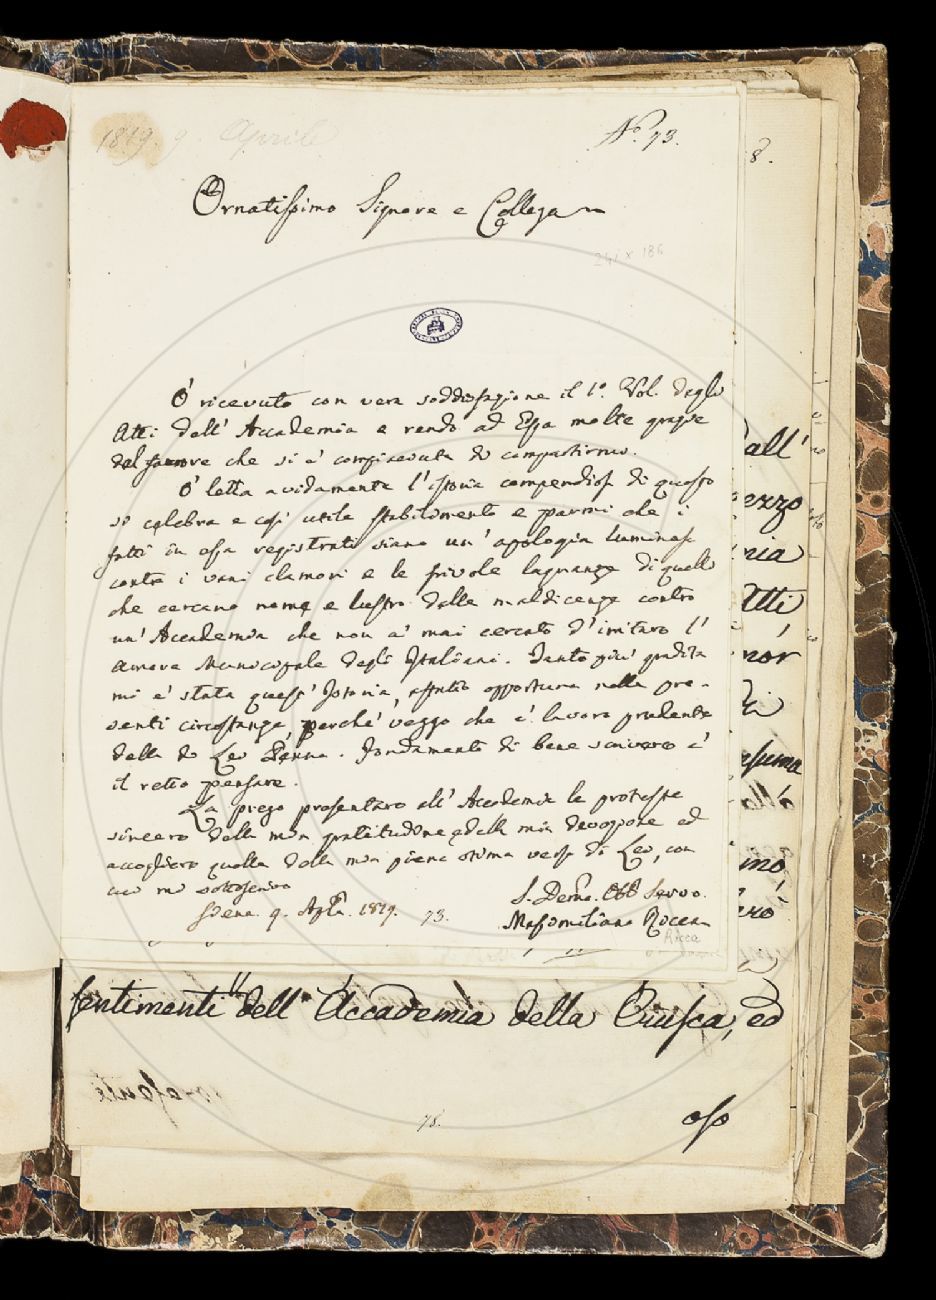 1819. 9. Aprile
N.º 73.
8.
Ornatissimo Signore e Collega
241 x 186
Ò ricevuto con vera soddisfazione il 1.º Vol. degli
Atti dell' Accademia e rendo ad Essa molte grazie
del favore che si è compiaciuta di compartirmi.
Ò letta avidamente l'istoria compendiosa di questo
sì celebre e così utile stabilimento e parmi che i
fatti in essa registrati siano un' apologia luminosa
contro i vani clamori e le frivole lagnanze di quelli
che cercano nome e lustro dalle maldicenze contro
un' Accademia che non à mai cercato d'irritare l'
amore Municipale degli Italiani. Tanto più gradita
mi è stata quest' Istoria, affatto opportuna nelle pre-
senti circostanze, perchè veggo che è lavoro prudente
della di Lei Penna. Fondamento di bene scrivere è
il retto pensare.
La prego presentare all' Accademia le proteste
sincere della mia gratitudine e della mia devozione ed
accogliere quella della mia piena stima verso di Lei, con
cui mi sottoscrivo
Siena 9. Aple. 1819.
73.
S. Devmo. Obb Servo.
Massimiliano Ricca
Ricca
all'
ezzo
nia
Atti
nór
suma
mo
sentimenti dell' Accademia della Crusca, ed
78.
esso